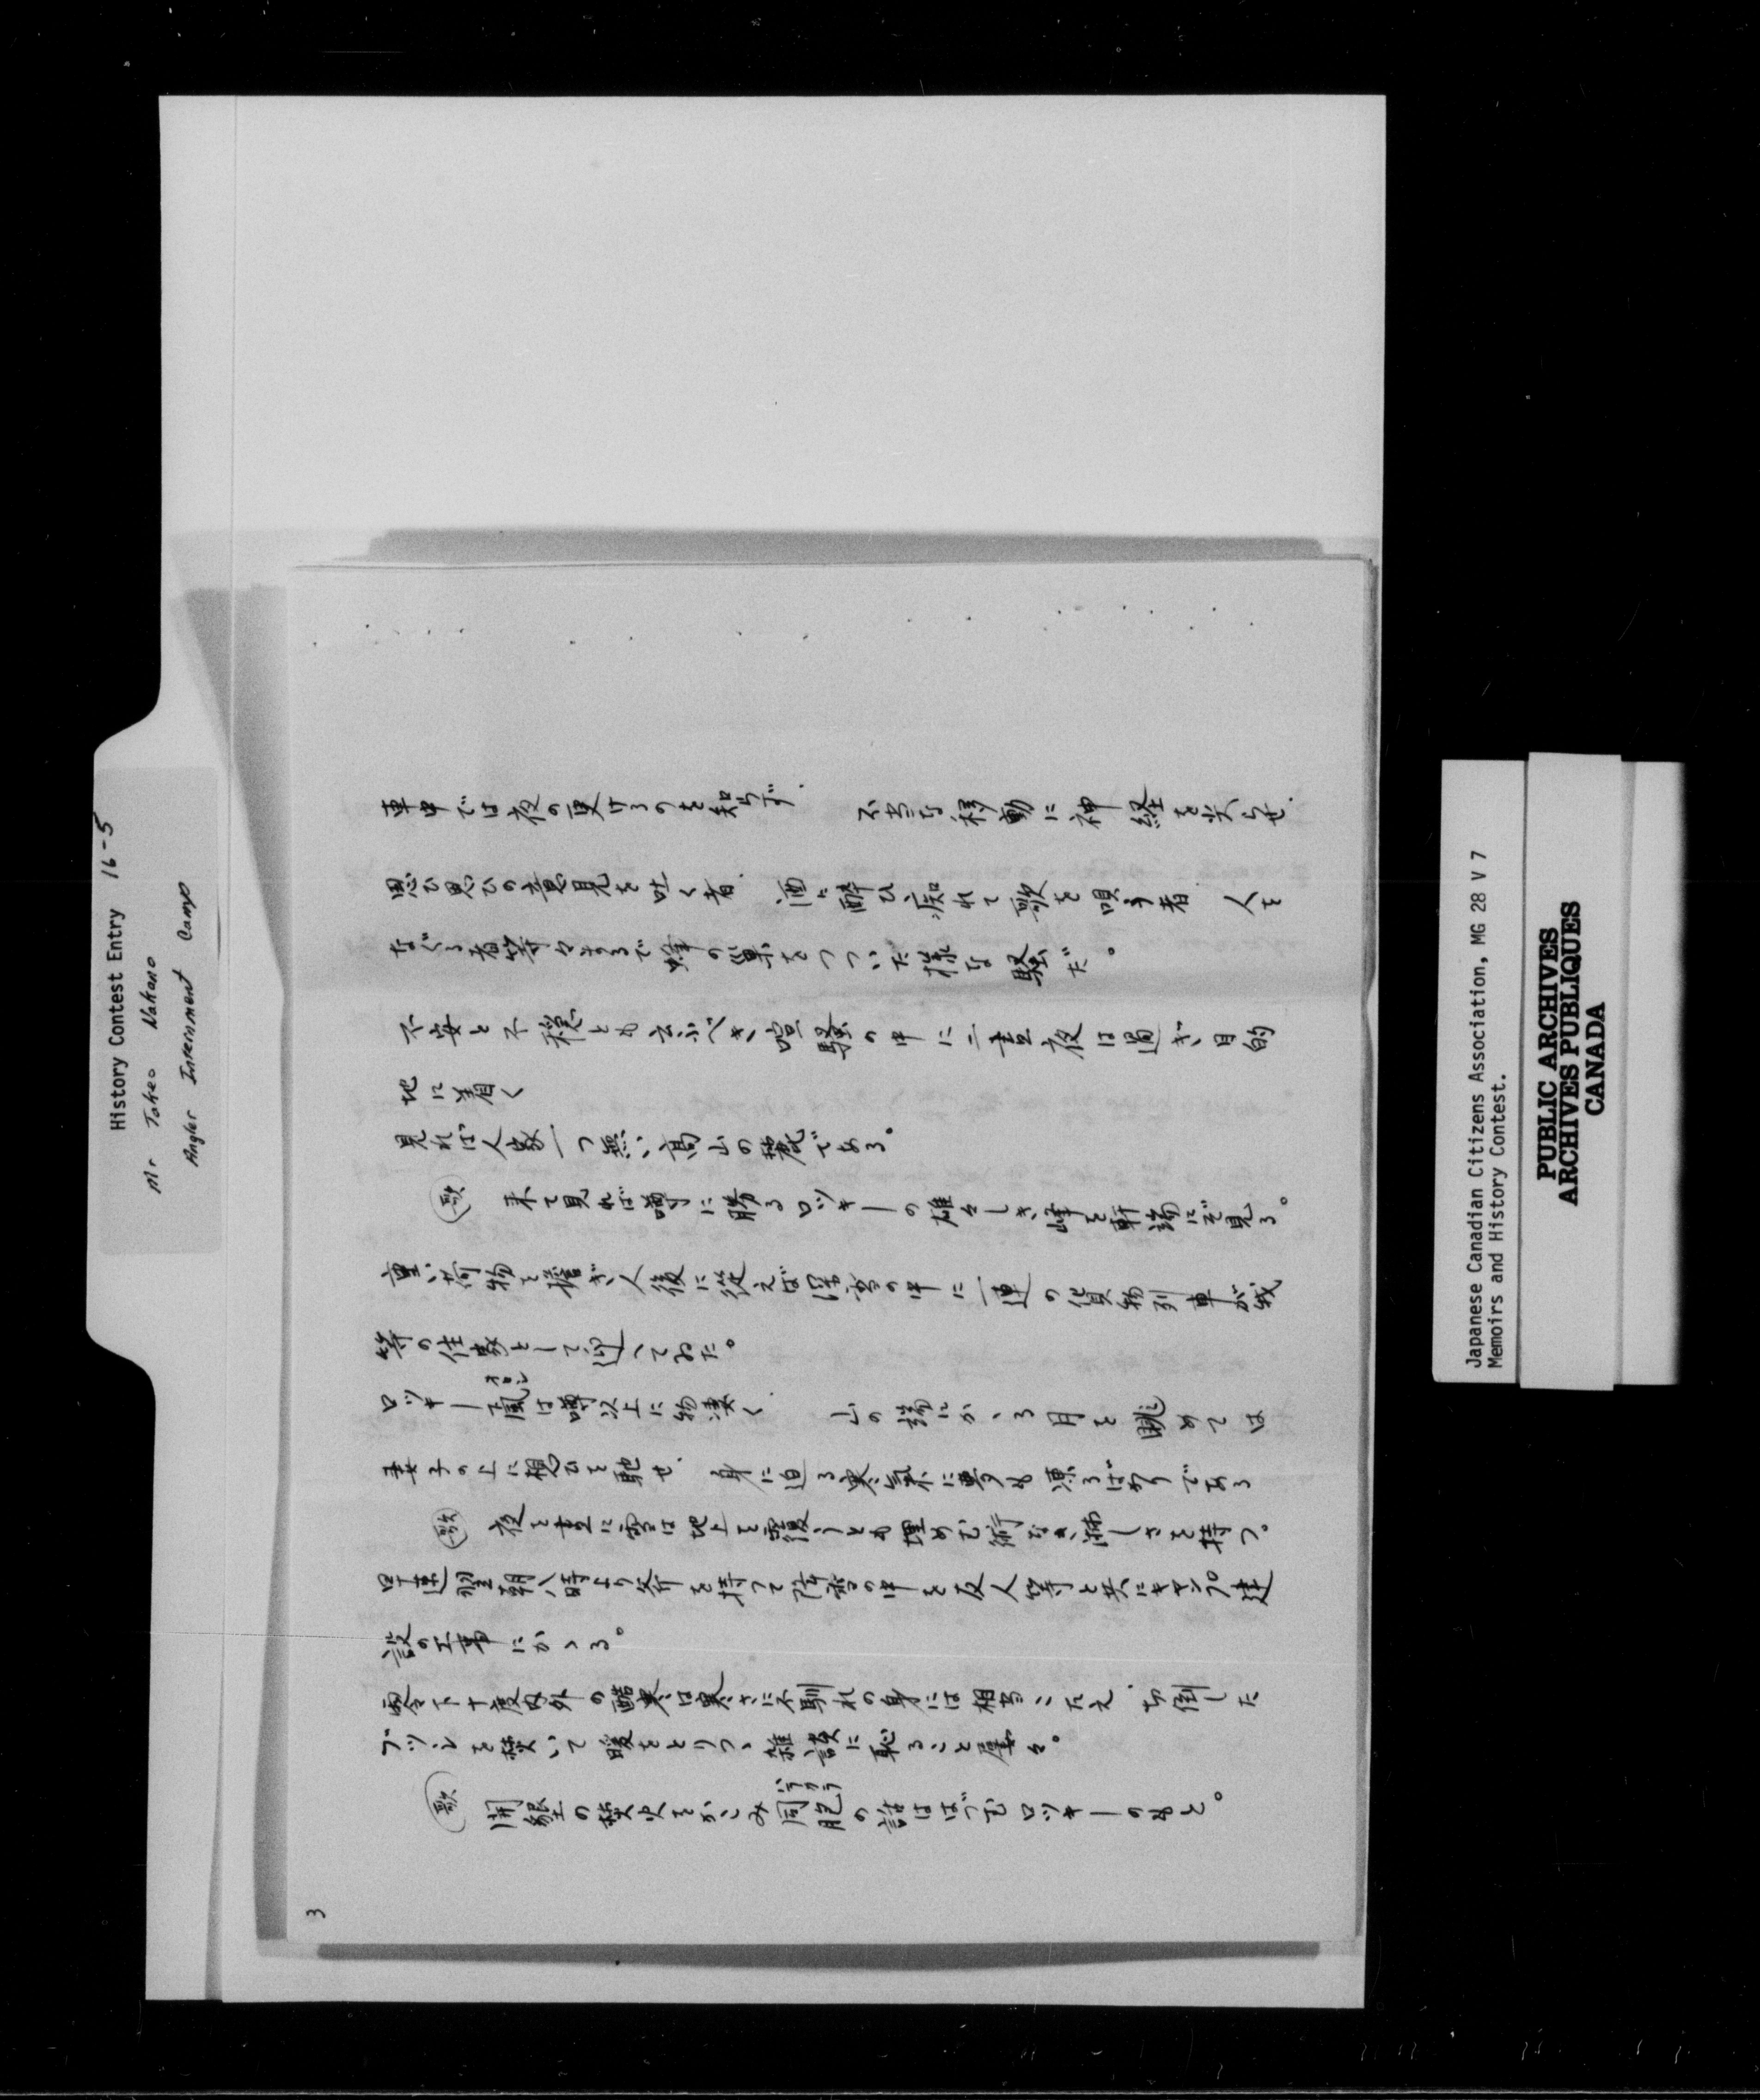 History Contest Entry 16-5
Mr Takeo Nakano
Angler Internment Camp
車中では夜の更けるのを知らず、不安な移動に神経を尖らせ、
思ひ思ひの意見を吐く者、酒に酔ひ痴れて歌を唄う者 人を
なぐる者等々まるで蜂の巣をつついた様な騒だ。
不安と不穏とも云ふべき喧騒の中に一昼夜は過ぎ、目的
地に着く
見れば人家一つ無い高山の麓である。
(歌) 来て見れば噂に勝るロッキーの雄々しき峰を軒端にぞ見る。
重い荷物を担ぎ、人後に従えば降雪の中に一連の貨物列車が我
等の住家として迎へてゐた。
ロッキー颪は噂以上に物凄く、山の端にかゝる月を眺めては
オロシ
妻子の上に想ひを馳せ、身に迫る寒気に夢も凍るばかりである
(歌) 夜を昼に雪は地上を とも埋めむ術なき淋しさを持つ。
早速翌朝八時より斧を持つて降雪の中を友人等と共にキャンプ建
設の工事にかゝる。
零下十度内外の酷寒は寒さに不馴れの身には相当こたえ、切倒した
ブッシを焚いて暖をとりつゝ雑談に耽ること屡々。
(歌) 開墾の焚火をかこみ同胞の話ははづむロッキーのもと。
ハラカラ
3
Japanese Canadian Citizens Association, MG 28 V 7
Memoirs and History Contest.
PUBLIC ARCHIVES
ARCHIVES PUBLIQUES
CANADA